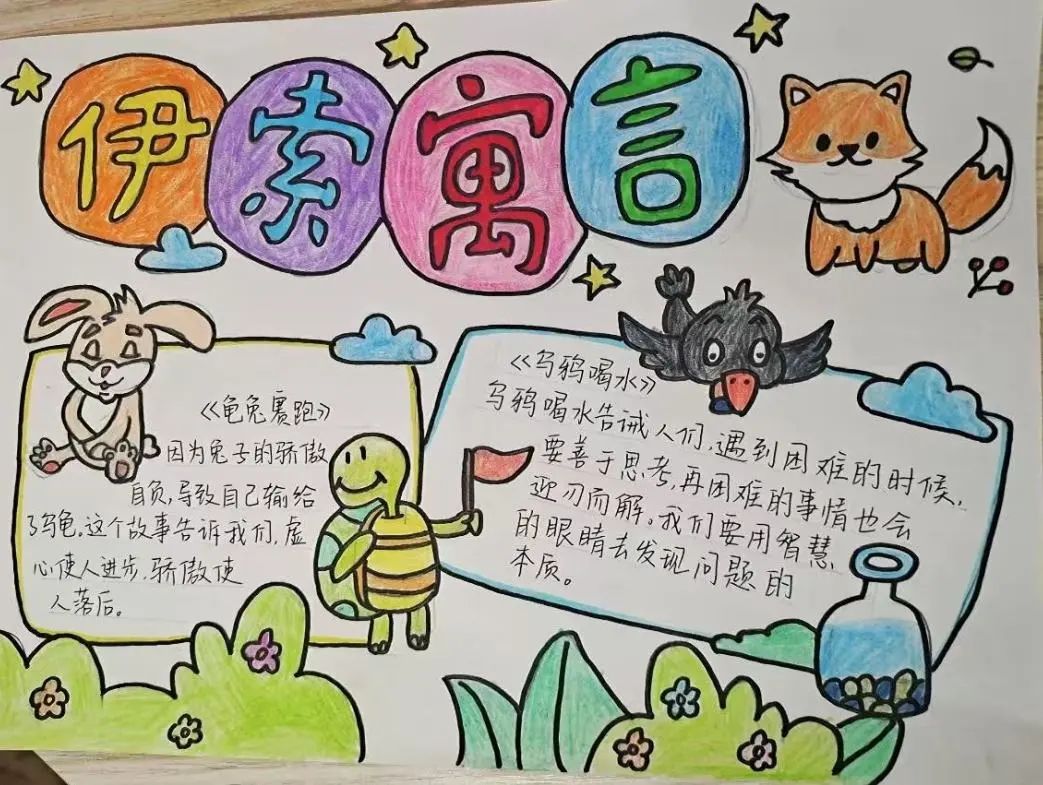 伊索寓言
《龟兔赛跑》
因为兔子的骄傲
自负,导致自己输给
了乌龟。这个故事告诉我们,虚
心使人进步,骄傲使
人落后。
《乌鸦喝水》
乌鸦喝水告诫人们,遇到困难的时候,
要善于思考,再困难的事情也会
迎刃而解。我们要用智慧
的眼睛去发现问题的
本质。